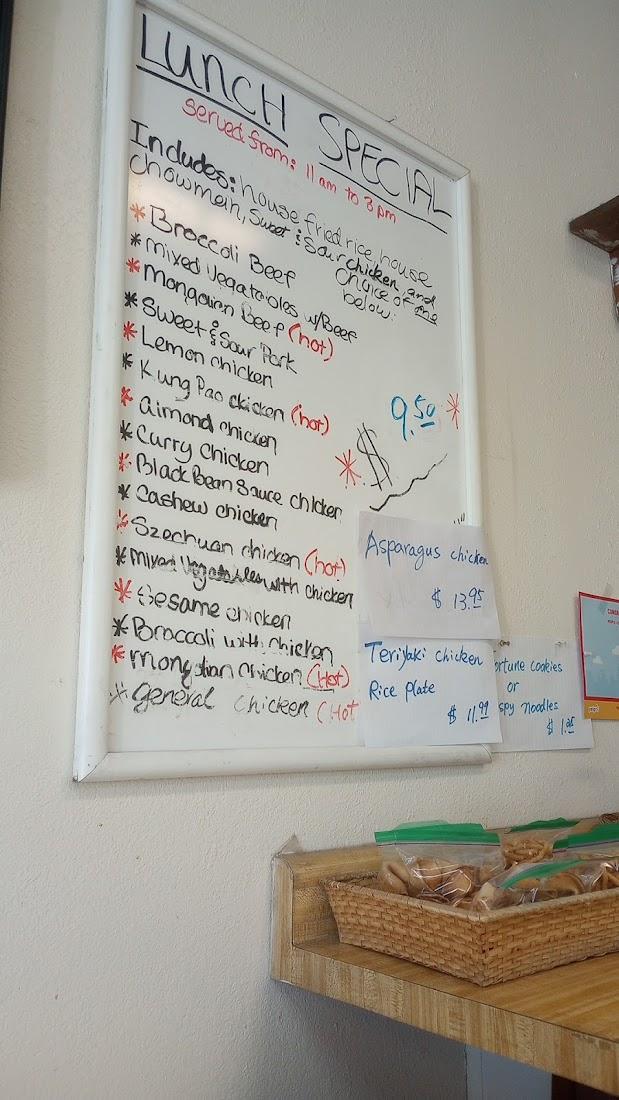 LUNCH SPECIAL
served from: 11am to 3pm
Includes: house fried rice, house
chowmein, Sweet & Sour chicken, and
Choice of one
below:
* Broccoli Beef
* mixed Vegatables w/Beef
* Mongolian Beef (hot)
* Sweet & Sour Pork
* Lemon chicken
* Kung Pao chicken (hot)
* almond chicken
* Curry Chicken
* Black Bean Sauce chicken
* Cashew chicken
* Szechuan chicken (hot)
* mixed Vegatables with chicken
* Sesame chicken
* Broccoli with chicken
* mongolian Chicken (Hot)
* General Chicken (Hot
* $ 9.50 *
Asparagus chicken
$ 13.95
Teriyaki chicken
Rice Plate
$ 11.99
ortune cookies
or
spy noodles